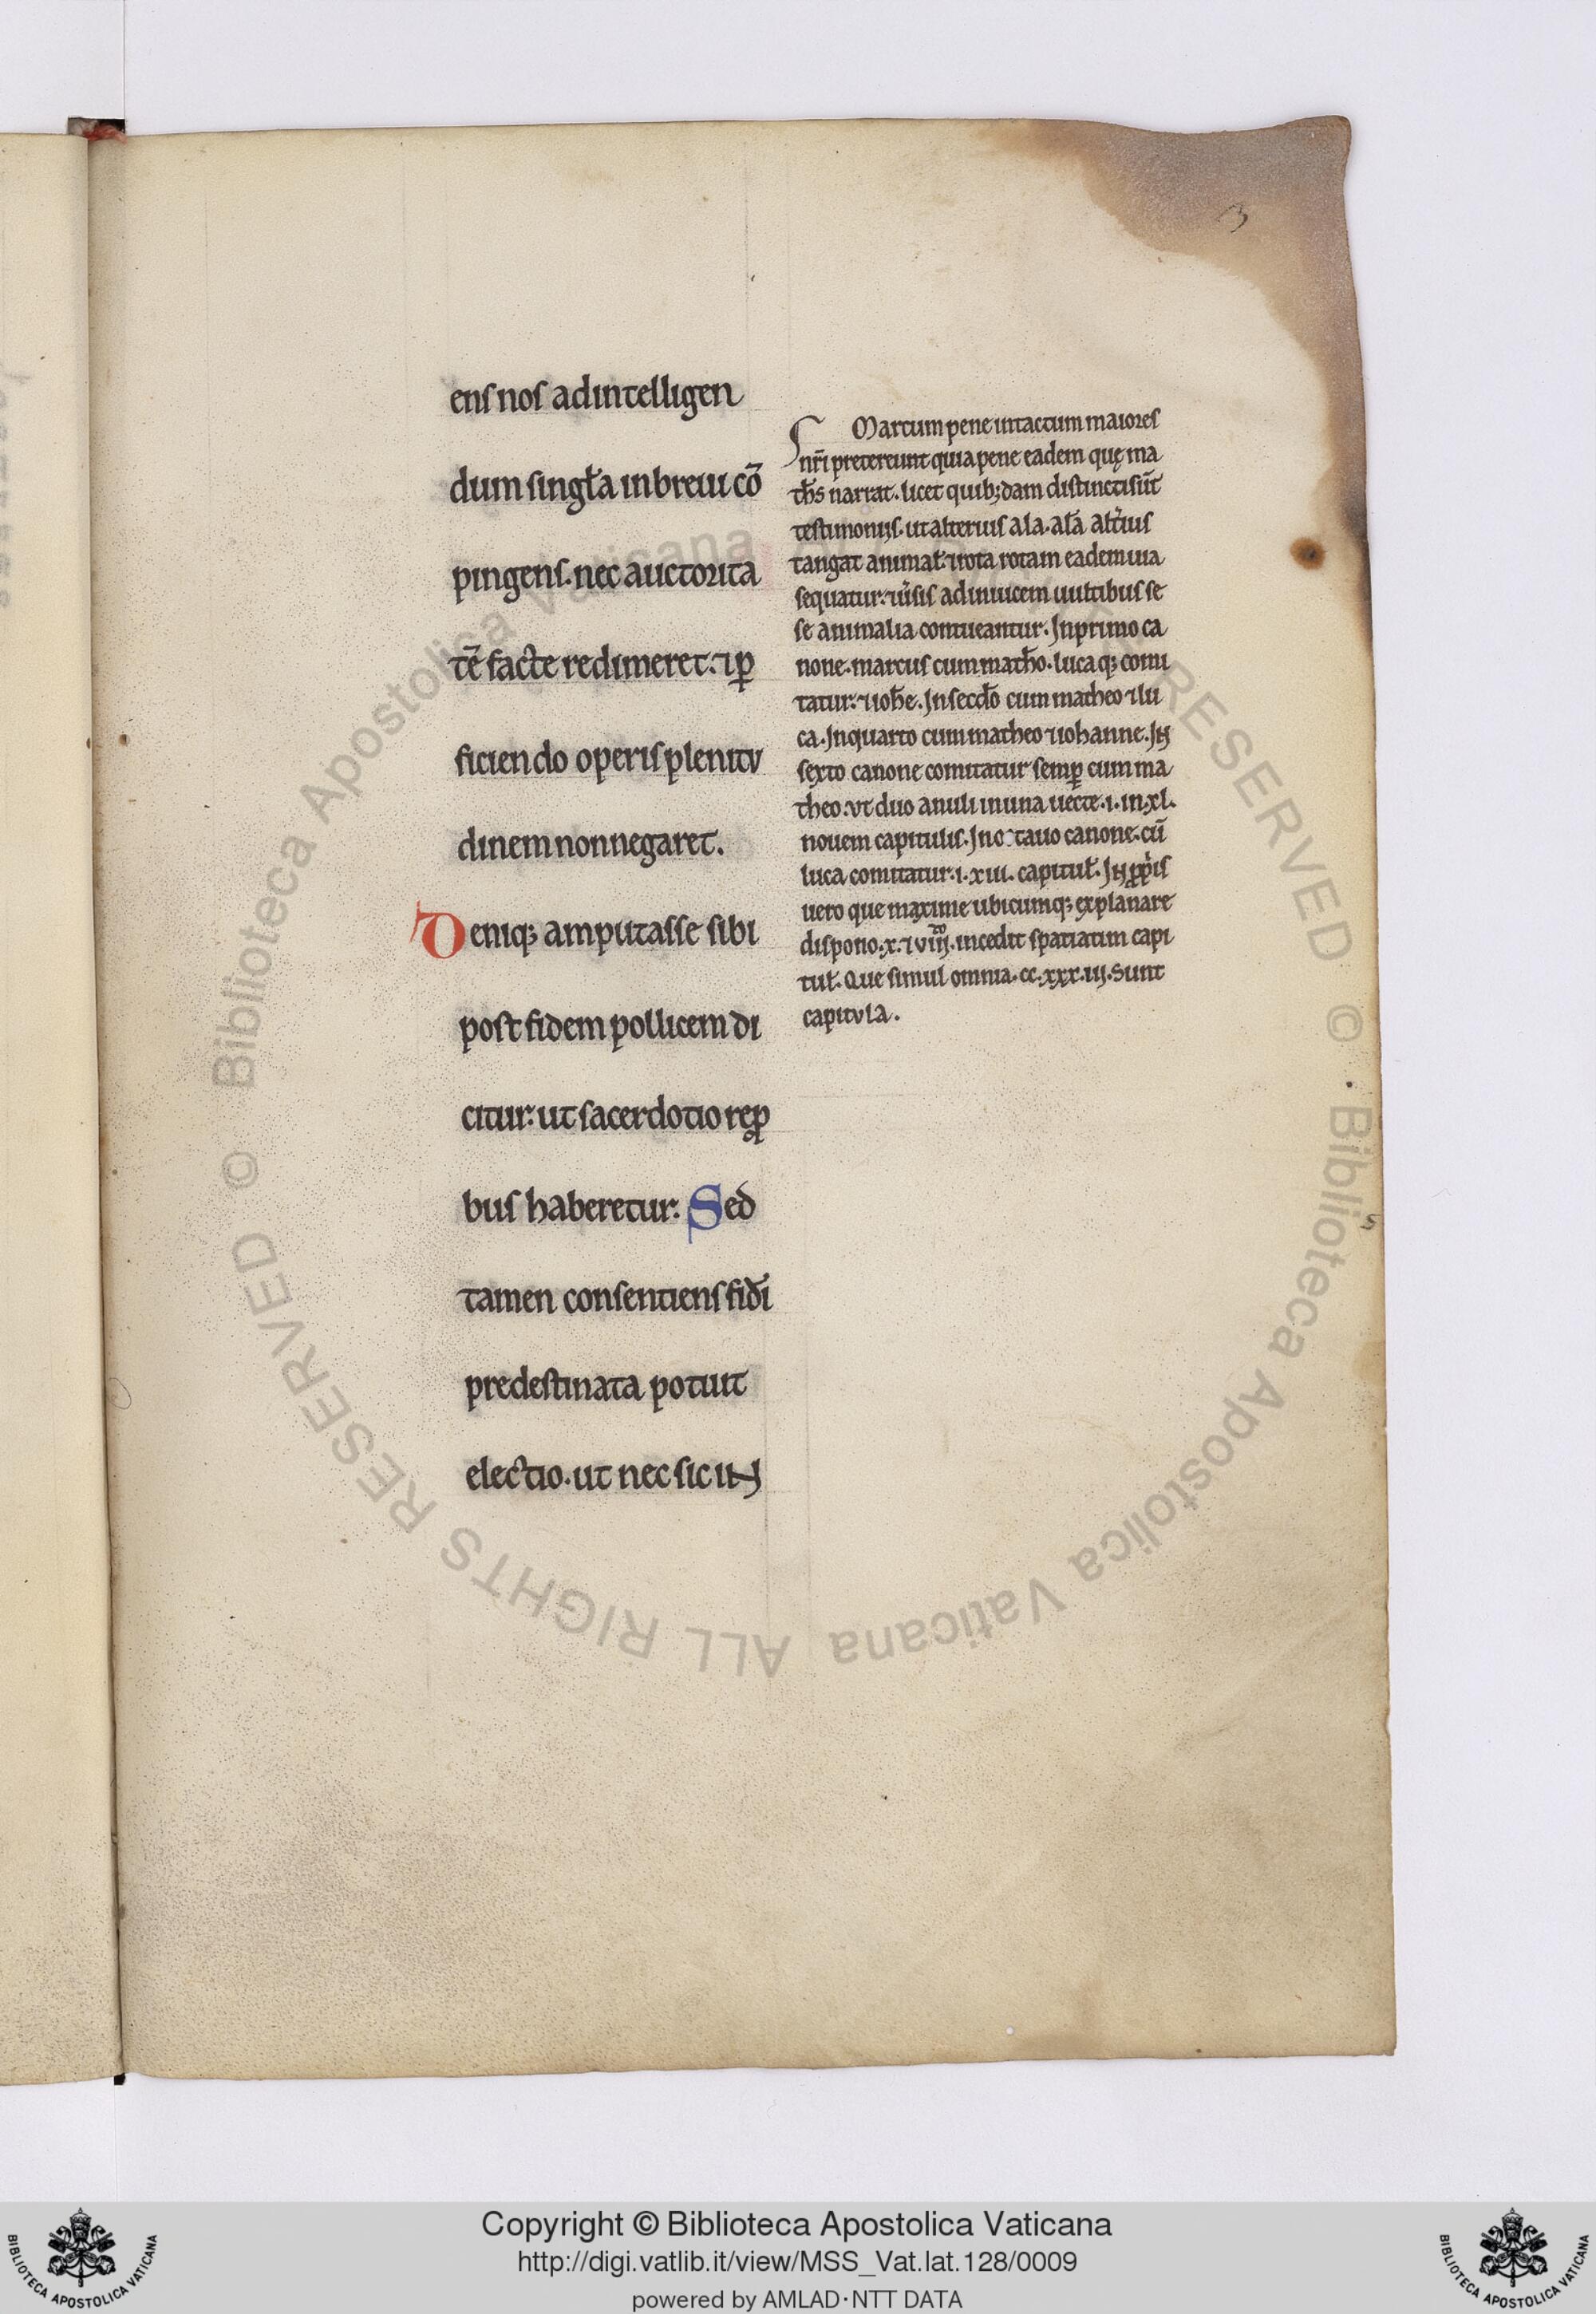 3
enſ noſ ad intelligen
dum ſingła in breui cō
pingenſ. nec auctorita
tē facte redimeret. ⁊ ꝑ
ficiendo operiſ plenitv
dinem non negaret.
Deniqꝫ amputaſſe ſibi
poſt fidem pollicem di
citur: ut ſacerdotio rep̱
buſ haberetur: Sed
tamen conſentienſ fid̄i
predeſtinata potuit
electio. ut nec ſic iN
Marcum pene intactum maioreſ
nr̄i pretereunt quia pene eadem quę ma
th̄s narrat. licet quibꝫdam diſtinctiſūt
teſtimonijſ. ut alteriuſ ala. alā alt̄iuſ
tangat animal̄. ⁊ rota rotam eadem uia
ſequatur. ⁊ ūſiſ ad inuicem uultibuſ ſe
ſe animalia contueantur. In primo ca
none. marcuſ cum math̄o. lucaqꝫ comi
tatur. ⁊ ioh̄e. In ſecd̄o cum matheo ⁊ lu
ca. In quarto cum matheo ⁊ iohanne. IN
ſexto canone comitatur ſemꝑ cum ma
theo. vt duo anuli in una uecte. i. in. xl.
nouem capituliſ. In octauo canone. cū
luca comitatur. i. xiii. capitul̄. IN ꝓp̄iſ
uero que maxime ubicumqꝫ explanare
diſpono. x. ⁊ viiij. incedit ſpatiatim capi
tul̄. Que ſimul omnia. cc. xxx. iij. Sunt
capitvla.
© Biblioteca Apostolica Vaticana ALL RIGHTS RESERVED
Copyright © Biblioteca Apostolica Vaticana
http://digi.vatlib.it/view/MSS_Vat.lat.128/0009
powered by AMLAD·NTT DATA
BIBLIOTECA APOSTOLICA VATICANA
BIBLIOTECA APOSTOLICA VATICANA